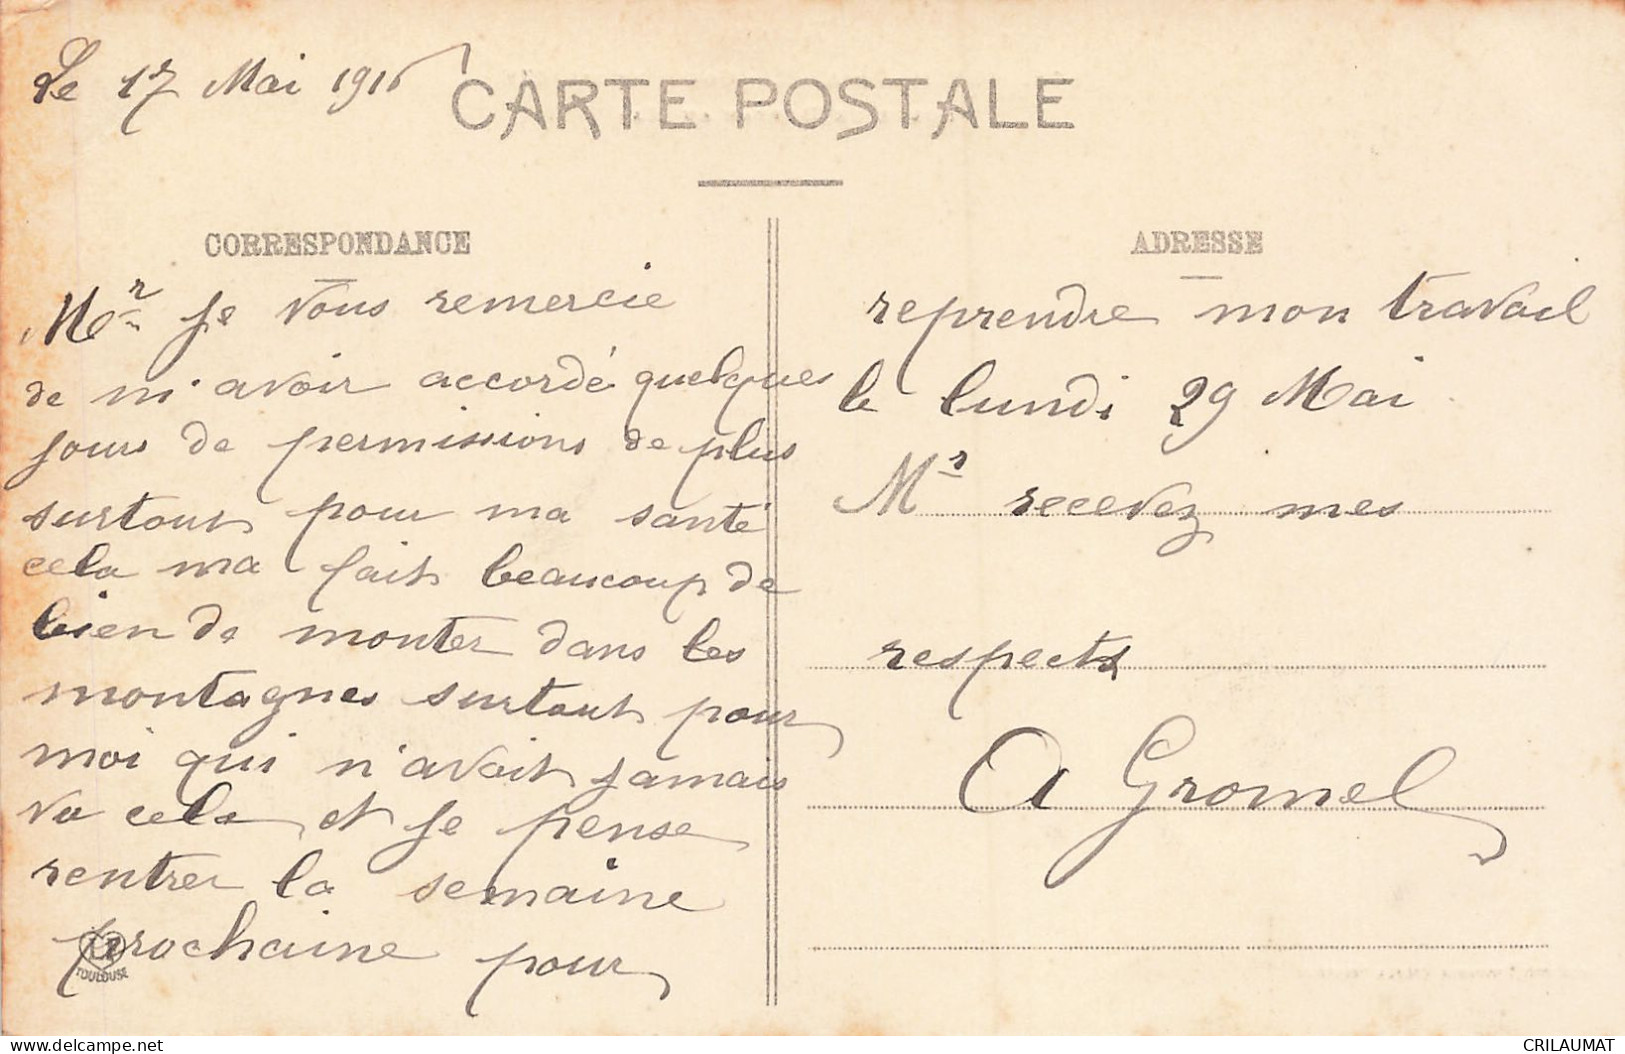 Le 17 Mai 1916
CARTE POSTALE
CORRESPONDANCE
Mr je vous remercie
de m'avoir accordé quelques
jours de permissions de plus
surtout pour ma santé
cela ma fait beaucoup de
bien de monter dans les
montagnes surtout pour
moi qui n'avait jamais
vu cela et je pense
rentrer la semaine
prochaine pour
TOULOUSE
ADRESSE
reprendre mon travail
le lundi 29 Mai
Mr recevez mes
respects
A Gromel
CRILAUMAT